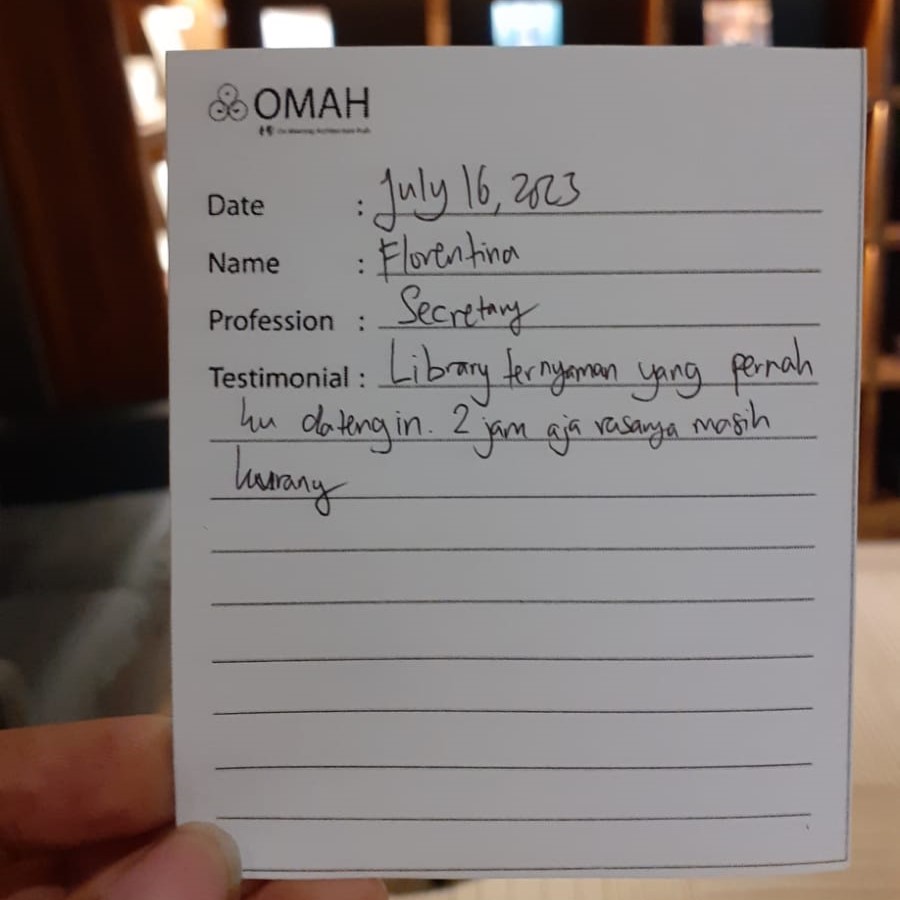 OMAH
Date : July 16, 2023
Name : Florentina
Profession : Secretary
Testimonial : Library ternyaman yang pernah
ku datengin. 2 jam aja rasanya masih
kurang